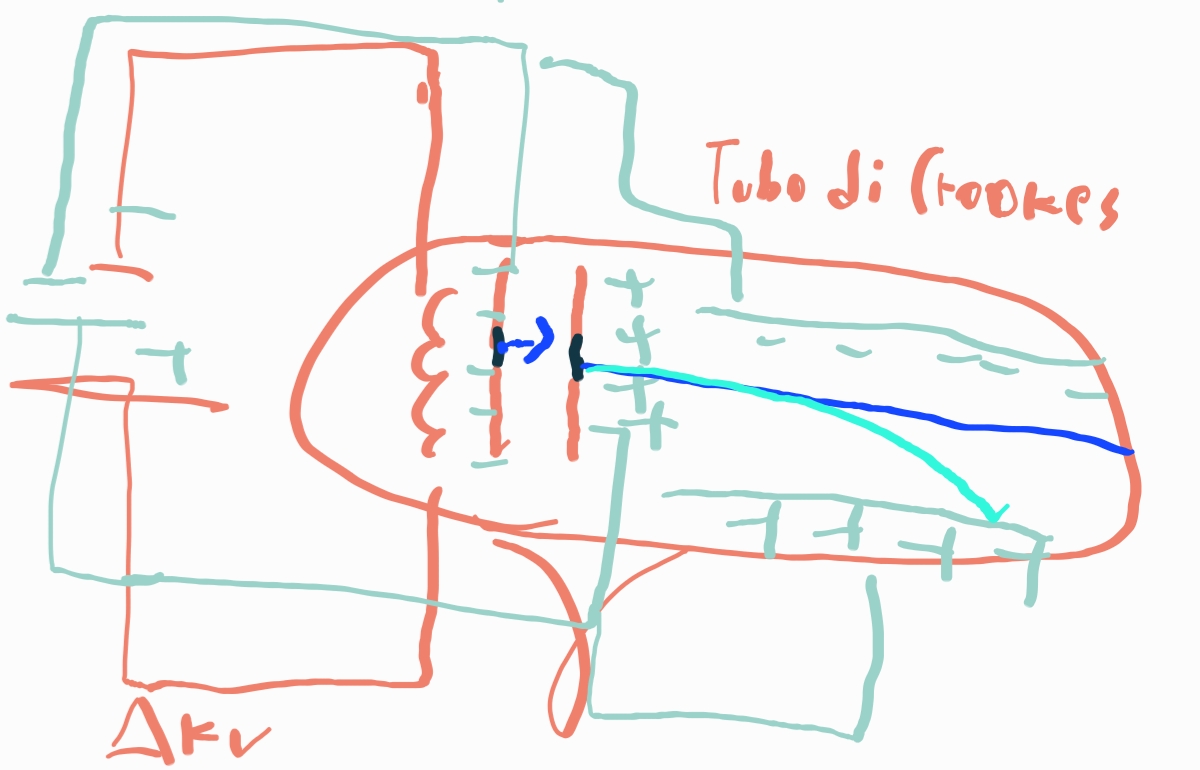 Tubo di Crookes
Δkv